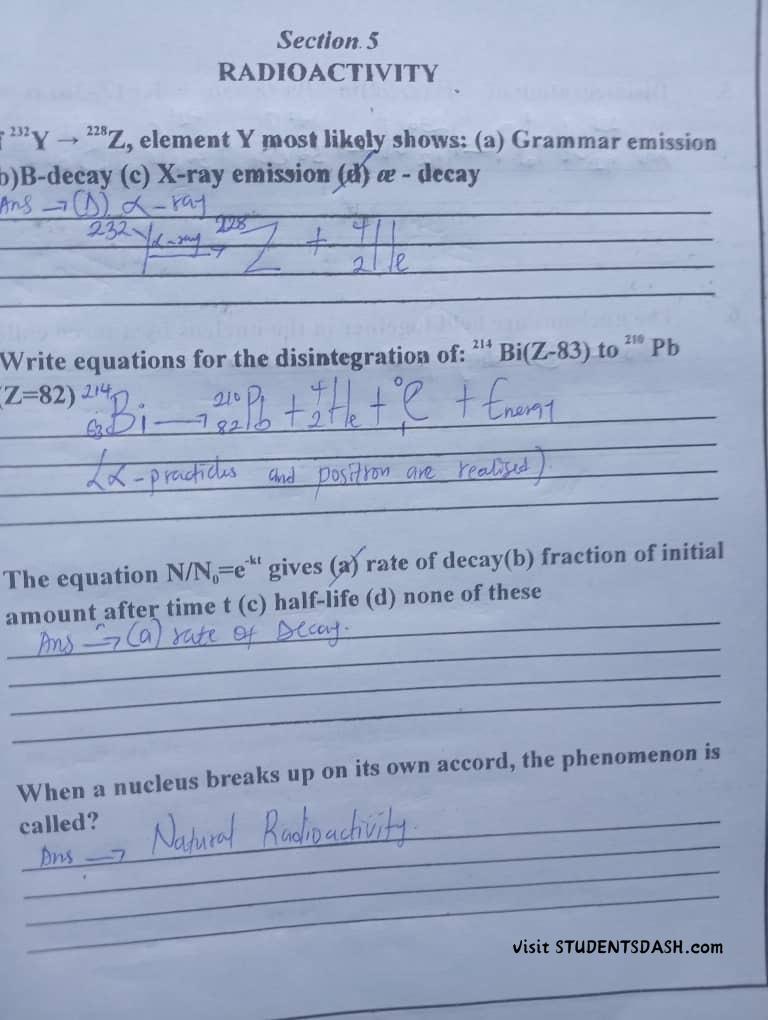 Section 5
RADIOACTIVITY
²³²Y → ²²⁸Z, element Y most likely shows: (a) Grammar emission
b)B-decay (c) X-ray emission (d) æ - decay
Ans → (D) α-ray
232 Y α-ray → 228 Z + 4 2 He
Write equations for the disintegration of: ²¹⁴ Bi(Z-83) to ²¹⁰ Pb
(Z=82) 214 83 Bi → 210 82 Pb + 4 2 He + 0 1 e + Energy
(α-practicles and positron are realised).
The equation N/N₀=e⁻ᵏᵗ gives (a) rate of decay(b) fraction of initial
amount after time t (c) half-life (d) none of these
Ans → (a) rate of Decay.
When a nucleus breaks up on its own accord, the phenomenon is
called?
Ans → Natural Radioactivity.
Visit STUDENTSDASH.com